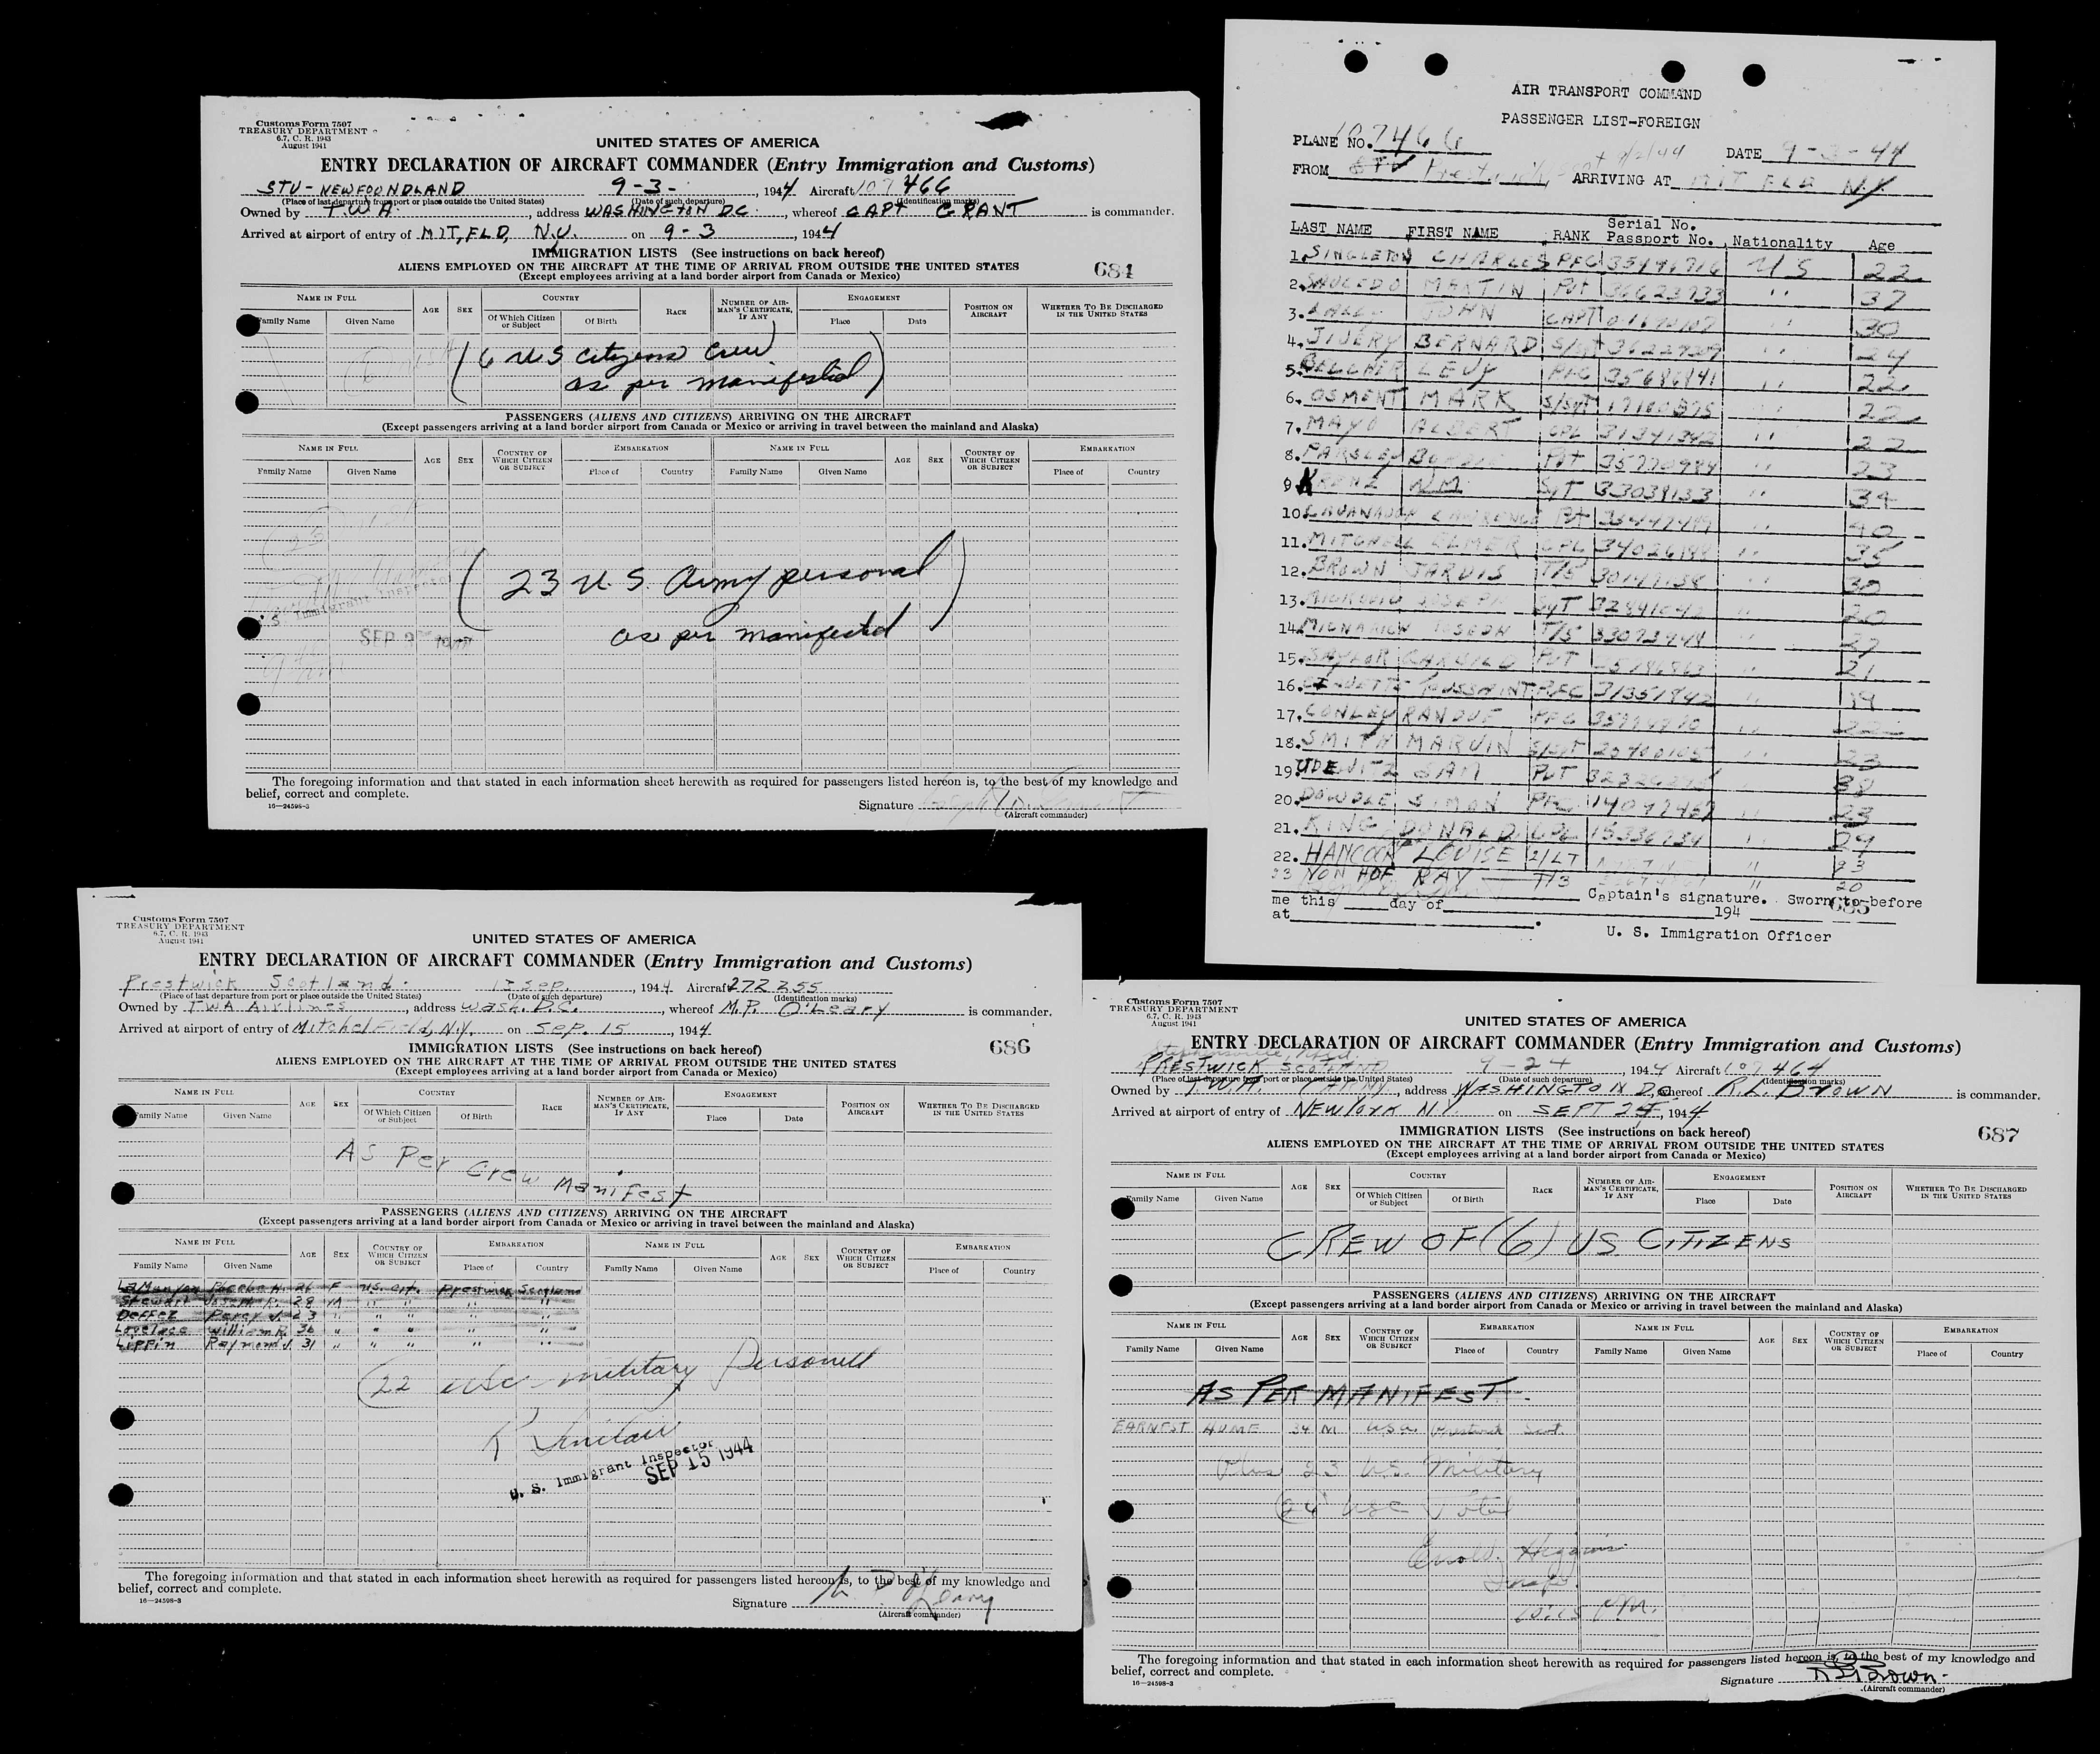 Customs Form 7507
TREASURY DEPARTMENT
6.7, C. R. 1943
August 1941
UNITED STATES OF AMERICA
ENTRY DECLARATION OF AIRCRAFT COMMANDER (Entry Immigration and Customs)
STV - NEWFOONDLAND 9-3- , 1944 Aircraft 107466
(Place of last departure from port or place outside the United States) (Date of such departure) (Identification marks)
Owned by T.W.A. , address WASHINGTON D.C. , whereof CAPT GRANT is commander.
Arrived at airport of entry of MIT, FLD, N.Y. on 9-3 , 1944
IMMIGRATION LISTS (See instructions on back hereof)
684
ALIENS EMPLOYED ON THE AIRCRAFT AT THE TIME OF ARRIVAL FROM OUTSIDE THE UNITED STATES
(Except employees arriving at a land border airport from Canada or Mexico)
NAME IN FULL AGE SEX COUNTRY RACE NUMBER OF AIRMAN'S CERTIFICATE, IF ANY ENGAGEMENT POSITION ON AIRCRAFT WHETHER TO BE DISCHARGED IN THE UNITED STATES
Family Name Given Name Of Which Citizen or Subject Of Birth Place Date
(6 U.S citizens Crew
as per manifested)
PASSENGERS (ALIENS AND CITIZENS) ARRIVING ON THE AIRCRAFT
(Except passengers arriving at a land border airport from Canada or Mexico or arriving in travel between the mainland and Alaska)
NAME IN FULL AGE SEX COUNTRY OF WHICH CITIZEN OR SUBJECT EMBARKATION NAME IN FULL AGE SEX COUNTRY OF WHICH CITIZEN OR SUBJECT EMBARKATION
Family Name Given Name Place of Country Family Name Given Name Place of Country
(23 U.S. Army personal
as per manifested)
Immigrant Inspector
SEP
The foregoing information and that stated in each information sheet herewith as required for passengers listed hereon is, to the best of my knowledge and
belief, correct and complete.
16—24598-3
Signature
(Aircraft commander)
AIR TRANSPORT COMMAND
PASSENGER LIST-FOREIGN
PLANE NO. 107466 DATE 9-3-44
FROM Prestwick, ARRIVING AT MIT FLD N.Y.
LAST NAME FIRST NAME RANK Serial No. Passport No. Nationality Age
1. SINGLETON CHARLES PFC 35496716 U S 22
2. MARTIN Pvt 36623933 " 37
3. JOHN CAPT " 30
4. BERNARD S/Sgt 36229309 " 24
5. BELCHER LEVY PFC 35686841 " 22
6. OSMENT MARK S/Sgt " 22
7. MAYO ALBERT CPL 31341342 " 22
8. PARSLEY Pvt 35770984 " 23
9. NM SgT 33038133 " 34
10. LAWRENCE Pvt " 40
11. MITCHELL ELMER CPL " 35
12. BROWN JARVIS T/5 " 30
13. JOSEPH SgT " 20
14. T/5 " 27
15. SAYLOR PVT " 21
16. TOUSSAINT PFC " 19
17. CONLEY PFC " 22
18. SMITH MARVIN S/Sgt 20400105 " 23
19. UDEWITZ SAM PVT " 38
20. SIMON PFC " 23
21. KING DONALD CPL 15336734 " 29
22. HANCOCK LOUISE 2/LT " 23
23 NON HOF RAY T/3 " 20
Captain's signature. Sworn to before
me this day of 194
685
at
U. S. Immigration Officer
Customs Form 7507
TREASURY DEPARTMENT
6.7, C. R. 1943
August 1941
UNITED STATES OF AMERICA
ENTRY DECLARATION OF AIRCRAFT COMMANDER (Entry Immigration and Customs)
Prestwick Scotland. 13 Sep. , 1944 Aircraft 272255
(Place of last departure from port or place outside the United States) (Date of such departure) (Identification marks)
Owned by TWA Airlines , address Wash. D.C. , whereof M.P. O'Leary is commander.
Arrived at airport of entry of Mitchel Field, N.Y. on Sep. 15 , 1944
IMMIGRATION LISTS (See instructions on back hereof)
686
ALIENS EMPLOYED ON THE AIRCRAFT AT THE TIME OF ARRIVAL FROM OUTSIDE THE UNITED STATES
(Except employees arriving at a land border airport from Canada or Mexico)
NAME IN FULL AGE SEX COUNTRY RACE NUMBER OF AIRMAN'S CERTIFICATE, IF ANY ENGAGEMENT POSITION ON AIRCRAFT WHETHER TO BE DISCHARGED IN THE UNITED STATES
Family Name Given Name Of Which Citizen or Subject Of Birth Place Date
As Per Crew Manifest
PASSENGERS (ALIENS AND CITIZENS) ARRIVING ON THE AIRCRAFT
(Except passengers arriving at a land border airport from Canada or Mexico or arriving in travel between the mainland and Alaska)
NAME IN FULL AGE SEX COUNTRY OF WHICH CITIZEN OR SUBJECT EMBARKATION NAME IN FULL AGE SEX COUNTRY OF WHICH CITIZEN OR SUBJECT EMBARKATION
Family Name Given Name Place of Country Family Name Given Name Place of Country
Phoebe H. 26 F U.S. cit. Prestwick Scotland
Stewart Joseph R. 28 M " " " "
Deffez Percy J. 23 " " " " "
Lovelace William R. 36 " " " " "
Luppin Raymond J. 31 " " " " "
(22 usc military personell
R Sinclair
U. S. Immigrant Inspector
SEP 15 1944
The foregoing information and that stated in each information sheet herewith as required for passengers listed hereon is, to the best of my knowledge and
belief, correct and complete.
16—24598-3
Signature M P O'Leary
(Aircraft commander)
Customs Form 7507
TREASURY DEPARTMENT
6.7, C. R. 1943
August 1941
UNITED STATES OF AMERICA
ENTRY DECLARATION OF AIRCRAFT COMMANDER (Entry Immigration and Customs)
Stephensville, Nfld.
PRESTWICK SCOTLAND 9-24 , 1944 Aircraft 107464
(Place of last departure from port or place outside the United States) (Date of such departure) (Identification marks)
Owned by T.W.A. (ARMY) , address WASHINGTON D.C. whereof R.L. BROWN is commander.
Arrived at airport of entry of NEW YORK N.Y. on SEPT 24 , 1944
IMMIGRATION LISTS (See instructions on back hereof)
687
ALIENS EMPLOYED ON THE AIRCRAFT AT THE TIME OF ARRIVAL FROM OUTSIDE THE UNITED STATES
(Except employees arriving at a land border airport from Canada or Mexico)
NAME IN FULL AGE SEX COUNTRY RACE NUMBER OF AIRMAN'S CERTIFICATE, IF ANY ENGAGEMENT POSITION ON AIRCRAFT WHETHER TO BE DISCHARGED IN THE UNITED STATES
Family Name Given Name Of Which Citizen or Subject Of Birth Place Date
CREW OF (6) US CITIZENS
PASSENGERS (ALIENS AND CITIZENS) ARRIVING ON THE AIRCRAFT
(Except passengers arriving at a land border airport from Canada or Mexico or arriving in travel between the mainland and Alaska)
NAME IN FULL AGE SEX COUNTRY OF WHICH CITIZEN OR SUBJECT EMBARKATION NAME IN FULL AGE SEX COUNTRY OF WHICH CITIZEN OR SUBJECT EMBARKATION
Family Name Given Name Place of Country Family Name Given Name Place of Country
AS PER MANIFEST
EARNEST HUME 34 M USA Prestwick Scot.
Plus 23 U.S. Military
(24) USC Total
Higgins
Inspr.
10:15 PM.
The foregoing information and that stated in each information sheet herewith as required for passengers listed hereon is, to the best of my knowledge and
belief, correct and complete.
16—24598-3
Signature R L Brown
(Aircraft commander)